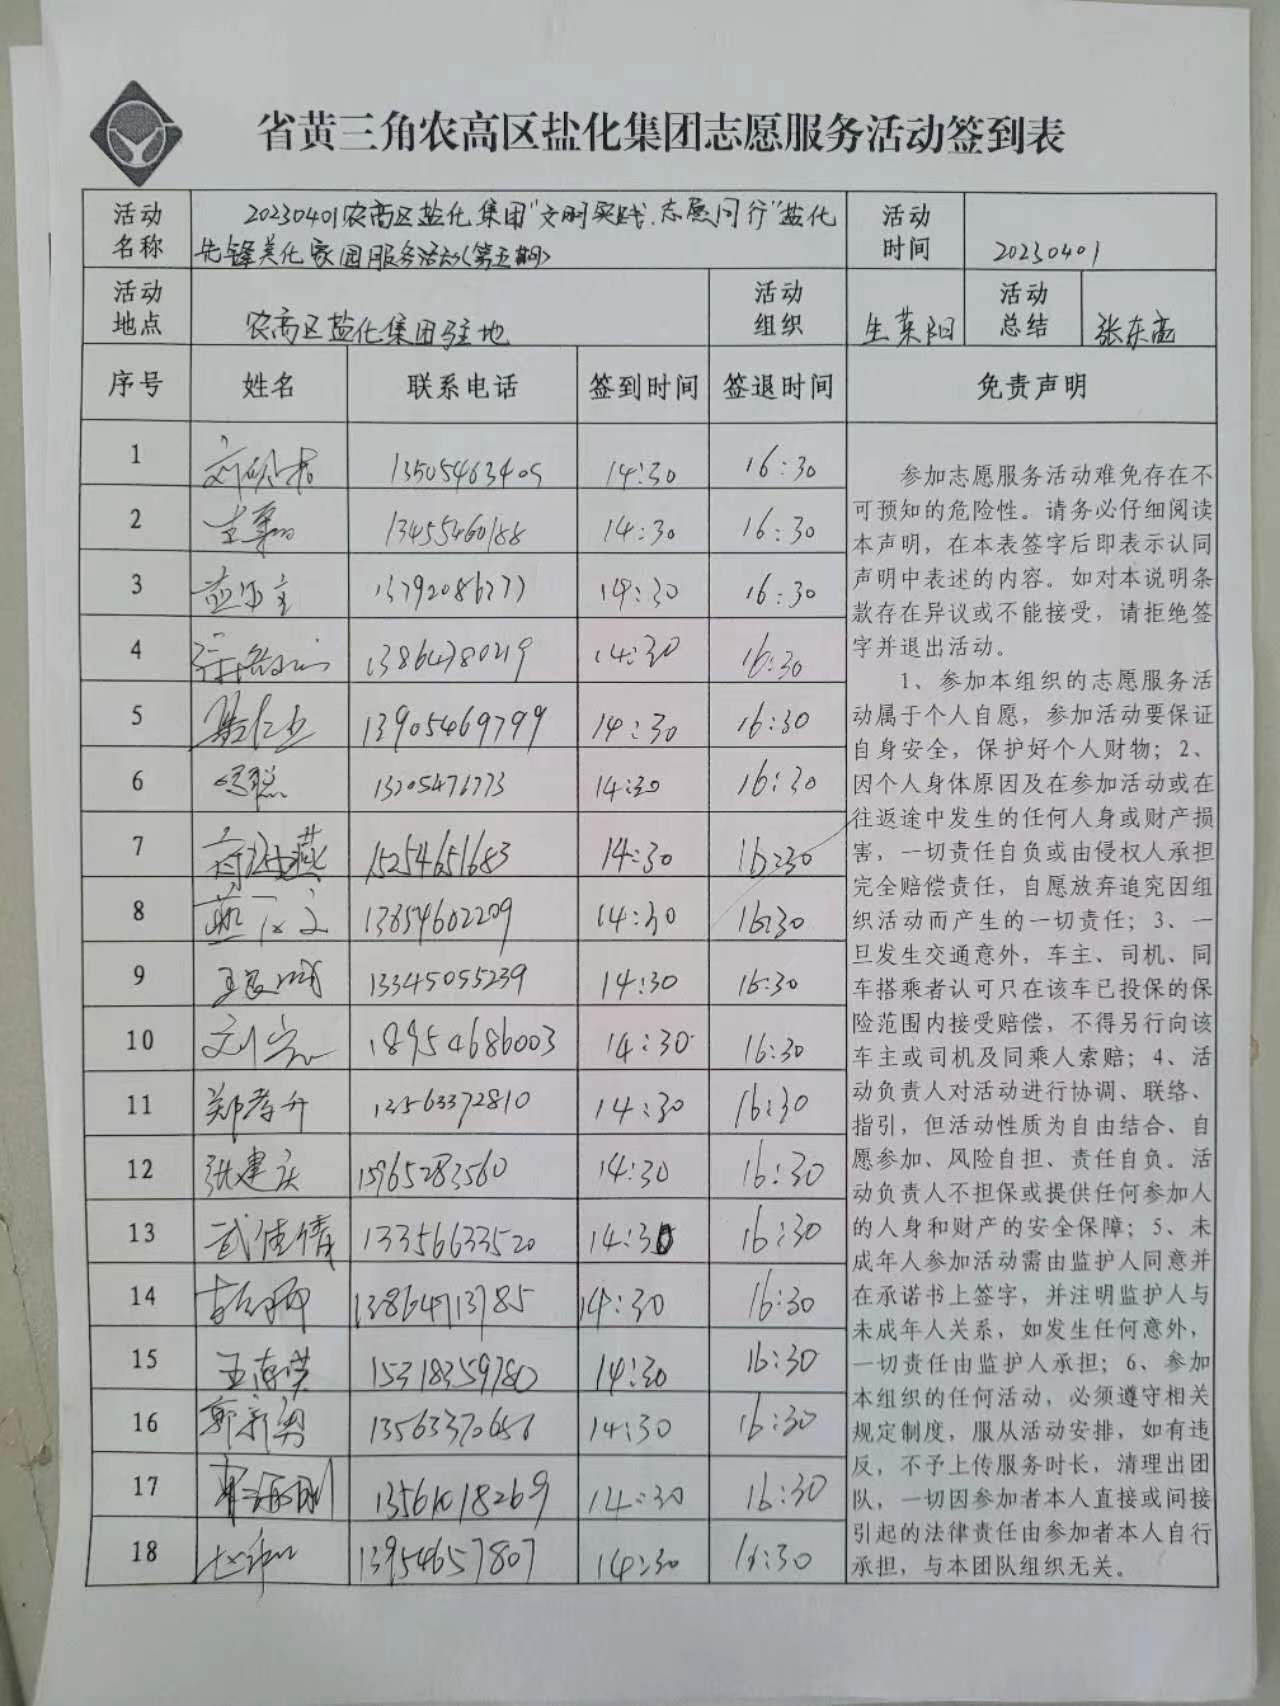 省黄三角农高区盐化集团志愿服务活动签到表
活动名称 20230401农高区盐化集团"文明实践、志愿同行"盐化
先锋美化家园服务活动(第五期) 活动时间 20230401
活动地点 农高区盐化集团驻地 活动组织 生莱阳 活动总结 张东
序号 姓名 联系电话 签到时间 签退时间 免责声明
1 13505463405 14:30 16:30
2 13455460188 14:30 16:30
3 14:30 16:30
4 13864780219 14:30 16:30
5 13905469799 14:30 16:30
6 聪 13205471773 14:30 16:30
7 燕 15254651683 14:30 16:30
8 13854602209 14:30 16:30
9 13345055239 14:30 16:30
10 刘 18954686003 14:30 16:30
11 郑孝升 13563372810 14:30 16:30
12 张建庆 15965283560 14:30 16:30
13 武佳倩 13356633520 14:30 16:30
14 13864713785 14:30 16:30
15 王海英 15318359780 14:30 16:30
16 郭新勇 14:30 16:30
17 13561018269 14:30 16:30
18 13954657807 14:30 16:30
参加志愿服务活动难免存在不
可预知的危险性。请务必仔细阅读
本声明，在本表签字后即表示认同
声明中表述的内容。如对本说明条
款存在异议或不能接受，请拒绝签
字并退出活动。
1、参加本组织的志愿服务活
动属于个人自愿，参加活动要保证
自身安全，保护好个人财物；2、
因个人身体原因及在参加活动或在
往返途中发生的任何人身或财产损
害，一切责任自负或由侵权人承担
完全赔偿责任，自愿放弃追究因组
织活动而产生的一切责任；3、一
旦发生交通意外，车主、司机、同
车搭乘者认可只在该车已投保的保
险范围内接受赔偿，不得另行向该
车主或司机及同乘人索赔；4、活
动负责人对活动进行协调、联络、
指引，但活动性质为自由结合、自
愿参加、风险自担、责任自负。活
动负责人不担保或提供任何参加人
的人身和财产的安全保障；5、未
成年人参加活动需由监护人同意并
在承诺书上签字，并注明监护人与
未成年人关系，如发生任何意外，
一切责任由监护人承担；6、参加
本组织的任何活动，必须遵守相关
规定制度，服从活动安排，如有违
反，不予上传服务时长，清理出团
队，一切因参加者本人直接或间接
引起的法律责任由参加者本人自行
承担，与本团队组织无关。